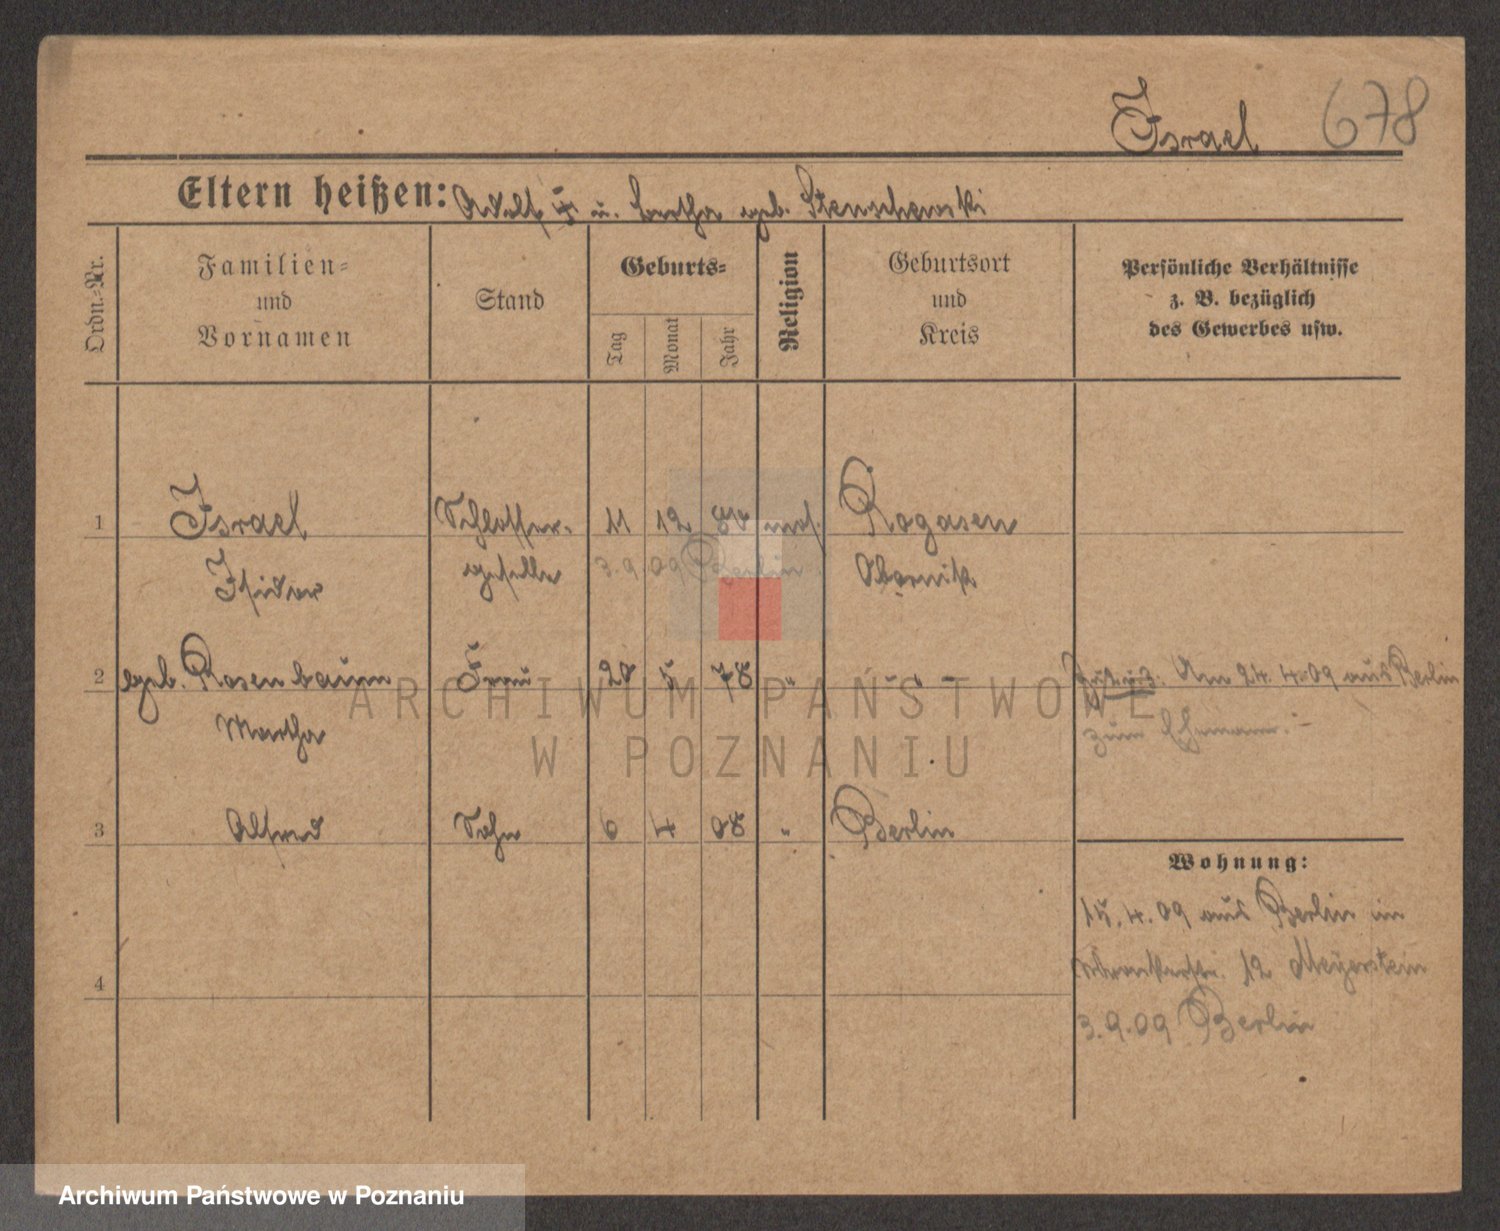 Israel 678
Eltern heißen: Adolf u. Bertha geb. Stenschewski
Ordn.-Nr.
Familien-
und
Vornamen
Stand
Geburts-
Tag
Monat
Jahr
Religion
Geburtsort
und
Kreis
Persönliche Verhältnisse
z. B. bezüglich
des Gewerbes usw.
1 Israel Schlosser- 11 12 mos. Rogasen
Isidor geselle 3.9.09 Berlin Obornik
2 geb. Rosenbaum Frau 28 5 78 " - " - Am 24.4.09 aus Berlin
Martha zum Ehemann.
3 Alfred Sohn 6 4 08 " Berlin
Wohnung:
15.4.09 aus Berlin in
12 Meyerstein
3.9.09 Berlin
4
ARCHIWUM PAŃSTWOWE
W POZNANIU
Archiwum Państwowe w Poznaniu